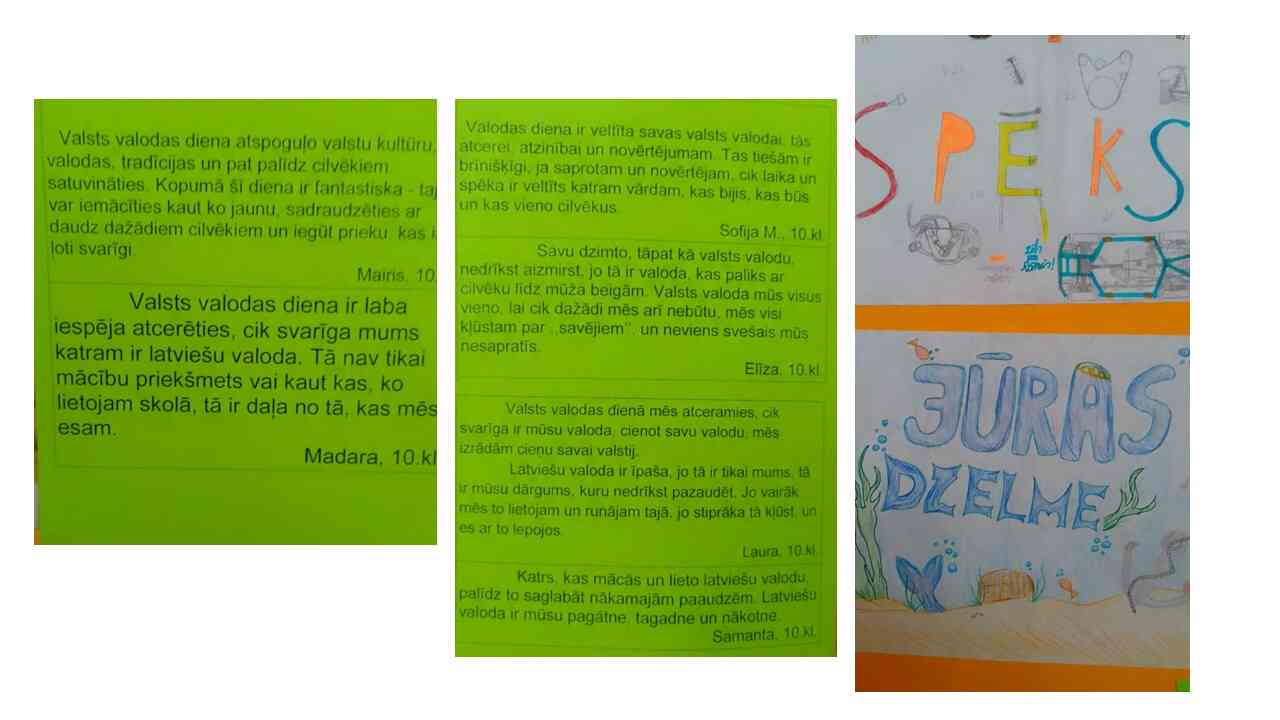 Valsts valodas diena atspoguļo valstu kultūru,
valodas, tradīcijas un pat palīdz cilvēkiem
satuvināties. Kopumā šī diena ir fantastiska - taj
var iemācīties kaut ko jaunu, sadraudzēties ar
daudz dažādiem cilvēkiem un iegūt prieku, kas i
ļoti svarīgi.
Mairis, 10.
Valsts valodas diena ir laba
iespēja atcerēties, cik svarīga mums
katram ir latviešu valoda. Tā nav tikai
mācību priekšmets vai kaut kas, ko
lietojam skolā, tā ir daļa no tā, kas mēs
esam.
Madara, 10.kl
Valodas diena ir veltīta savas valsts valodai, tās
atcerei, atzinībai un novērtējumam. Tas tiešām ir
brīnišķīgi, ja saprotam un novērtējam, cik laika un
spēka ir veltīts katram vārdam, kas bijis, kas būs
un kas vieno cilvēkus.
Sofija M., 10.kl.
Savu dzimto, tāpat kā valsts valodu,
nedrīkst aizmirst, jo tā ir valoda, kas paliks ar
cilvēku līdz mūža beigām. Valsts valoda mūs visus
vieno, lai cik dažādi mēs arī nebūtu, mēs visi
kļūstam par ,,savējiem'', un neviens svešais mūs
nesapratīs.
Elīza, 10.kl.
Valsts valodas dienā mēs atceramies, cik
svarīga ir mūsu valoda, cienot savu valodu, mēs
izrādām cieņu savai valstij.
Latviešu valoda ir īpaša, jo tā ir tikai mums, tā
ir mūsu dārgums, kuru nedrīkst pazaudēt. Jo vairāk
mēs to lietojam un runājam tajā, jo stiprāka tā kļūst, un
es ar to lepojos.
Laura, 10.kl.
Katrs, kas mācās un lieto latviešu valodu,
palīdz to saglabāt nākamajām paaudzēm. Latviešu
valoda ir mūsu pagātne, tagadne un nākotne.
Samanta, 10.kl.
SPĒKS
JŪRAS
DZELME